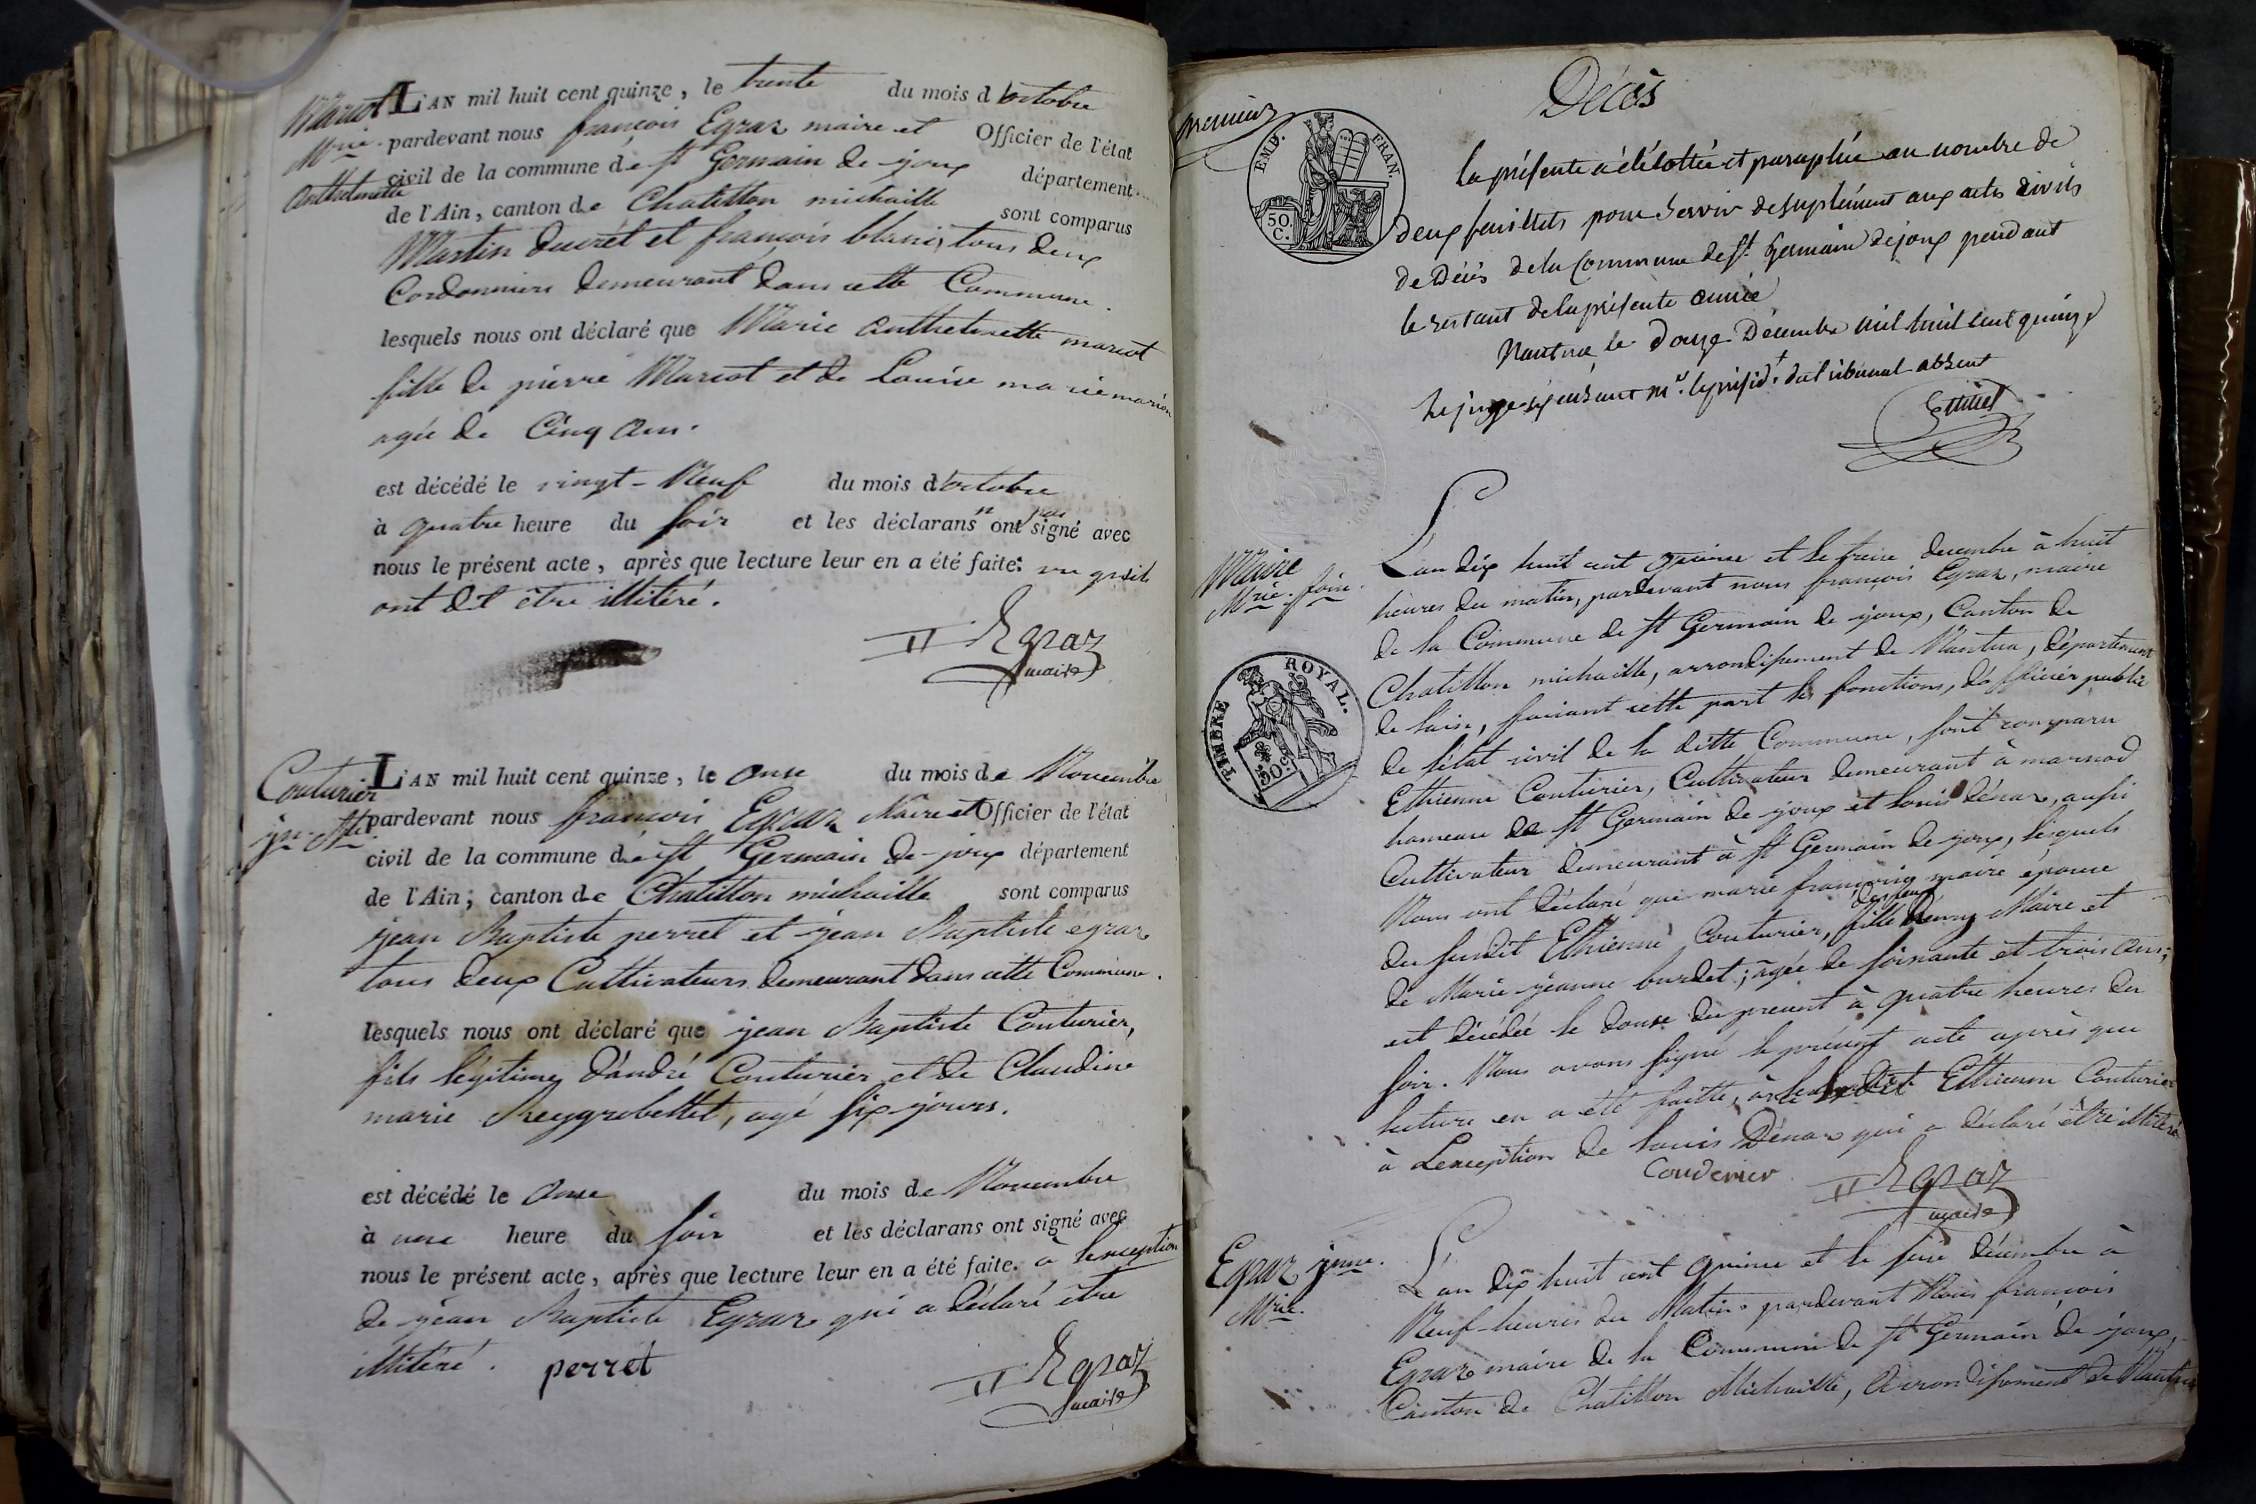 Marcot
Mrie
anthelmette
L'AN mil huit cent quinze, le trente du mois d'octobre
pardevant nous françois Egraz maire et Officier de l'état
civil de la commune de st Germain de joux département
de l'Ain, canton de Chatillon michaille sont comparus
Martin ducrét et françois blanc, tous deux
Cordonniers demeurant dans cette Commune.
lesquels nous ont déclaré que Marie anthelmette marcot
fille de pierre Marcot et de Louise marie
agée de Cinq ans.
est décédé le vingt-Neuf du mois d'octobre
à quatre heure du soir et les déclarans n'ont pas signé avec
nous le présent acte, après que lecture leur en a été faite: vu qu'ils
ont dit être illitéré.
Egraz
maire
Couturier
jn Bte
L'AN mil huit cent quinze, le onse du mois de Novembre
pardevant nous françois Egraz Maire et Officier de l'état
civil de la commune de st Germain de-joux département
de l'Ain; canton de Chatillon michaille sont comparus
jean Baptiste perret et jean Baptiste egraz
tous deux Cultivateurs demeurant dans cette Commune.
lesquels nous ont déclaré que jean Baptiste Couturier,
fils légitime d'andré Couturier et de Claudine
marie, agé six jours.
est décédé le onse du mois de Novembre
à une heure du soir et les déclarans ont signé avec
nous le présent acte, après que lecture leur en a été faite. à lexception
de jean Baptiste Egraz qui a déclaré être
illitéré. perret
Egraz
maire
Décès
premier
EMP. FRAN.
50 C.
la présente a été cottée et paraphée au nombre de
deux feuillets pour servir de suplément aux actes civils
de Décès de la Commune de st Germain de joux pendant
le restant de la présente année
Nantua le douze Décembre mil huit cent quinze
le juge mr le présidt du tribunal absent
Maire
Mrie. foise.
TIMBRE ROYAL.
50 c.
L'an dix huit cent quinse et le treise decembre à huit
heures du matin, pardevant nous françois Egraz, maire
de la Commune de st Germain de joux, Canton de
Chatillon michaille, arrondissement de Nantua, département
de lain, faisant cette part les fonctions, d'officier public
de l'état civil de la ditte Commune, sont comparu
Ethienne Couturier, Cultivateur demeurant à marnod
hameau de st Germain de joux et louis Dénaz, aussi
Cultivateur demeurant à st Germain de joux, lesquels
Nous ont déclaré que marie françoise maire épouse
du susdit Ethienne Couturier, fille des feus henry Maire et
de Marie jeanne burdet; agée de soixante et trois ans;
est décédée le douse du present à quatre heures du
soir. Nous avons signé le présent acte après que
lecture en a été faitte, avec le dit Ethienne Couturier
à Lexception de louis Dénaz qui a déclaré être illitéré
Couderier
Egraz
maire
Egraz jnne.
Mrie.
L'an dix huit cent quinse et le seise décembre à
Neuf-heures du Matin. pardevant Nous françois
Egraz maire de la Commune de st Germain de joux,
Canton de Chatillon Michaille, arrondissement de Nantua